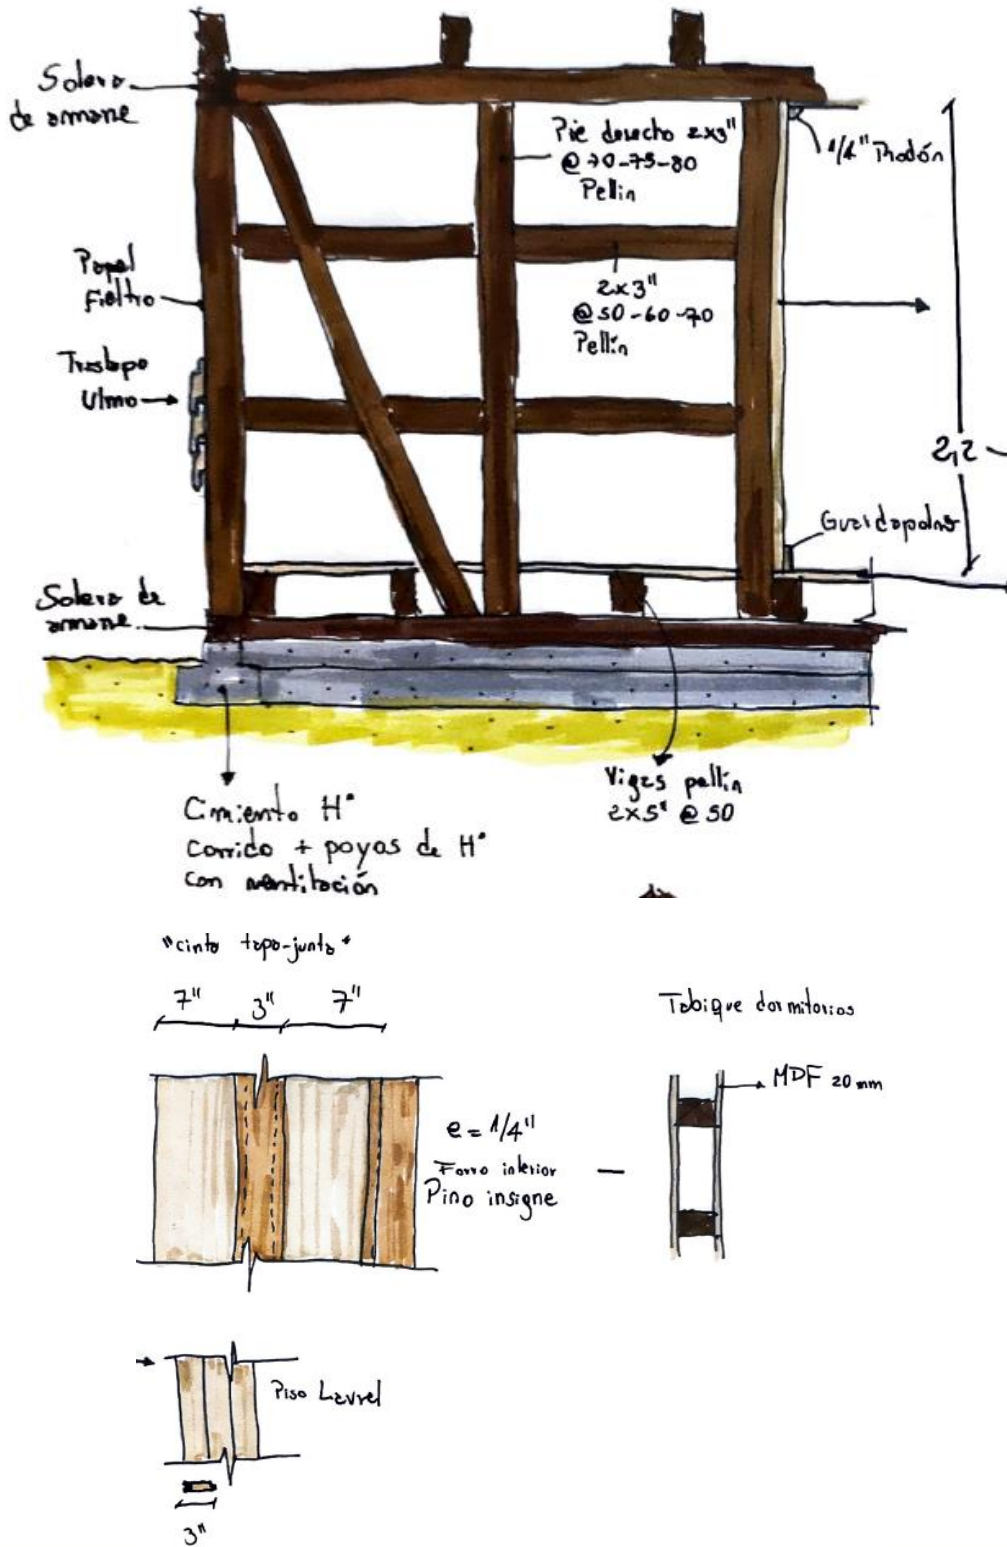 Solera
de amarre
Pie derecho 2x3"
@ 70-75-80
Pellin
1/4" Rodón
Papel
Fieltro
2x3"
@ 50-60-70
Pellín
Traslapo
Ulmo
2,2
Guardapolvo
Solera de
amarre
Vigas pellín
2x5" @ 50
Cimiento H°
Corrido + poyos de H°
con ventilación
"cinta tapa-junta"
7" 3" 7"
Tabique dormitorios
MDF 20 mm
e = 1/4"
Forro interior
Pino insigne
Piso Laurel
3"